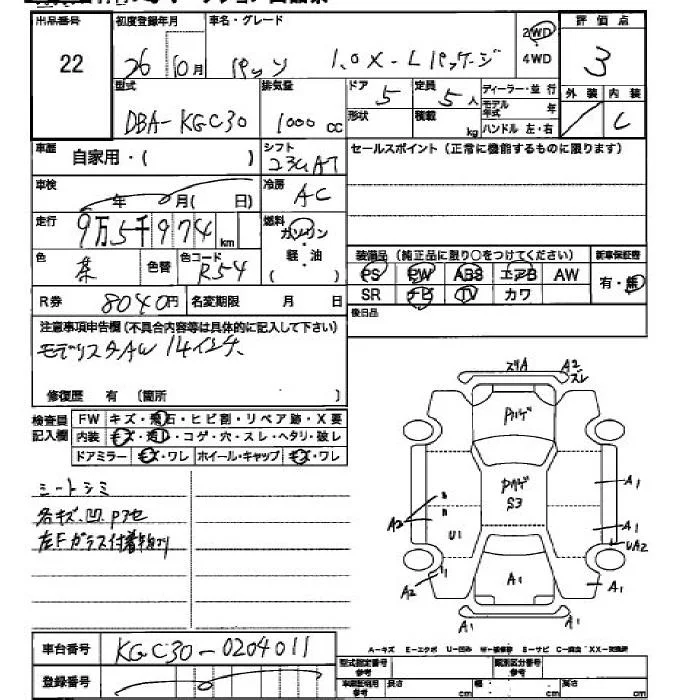 出品番号 初度登録年月 車名・グレード 2WD 評価点
22 26年 10月 パッソ 1.0X-Lパッケージ 4WD 3
型式 排気量 ドア 5 定員 5人 ディーラー・並行 外装 内装
DBA-KGC30 1000cc 形状 積載 kg モデル年式 年 C
ハンドル 左・右
車歴 自家用・( ) シフト セールスポイント(正常に機能するものに限ります)
車検 年 月( 日) 冷房 AC
走行 9万5千974km 燃料 ガソリン・軽・油 ( )
色 茶 色替 色コード R54 装備品(純正品に限り○をつけてください) 新車保証書
PS PW ABS エアB AW 有・無
R券 8040円 名変期限 月 日 SR ナビ TV カワ
後日品
注意事項申告欄(不具合内容等は具体的に記入して下さい)
モデリスタAW 14インチ
修復歴 有 (箇所 )
検査員記入欄 FW キズ・飛石・ヒビ割・リペア跡・X要
内装 キズ・汚れ・コゲ・穴・スレ・ヘタリ・破レ
ドアミラー キズ・ワレ ホイール・キャップ キズ・ワレ
シートシミ
各キズ.凹.Pアセ
左Fガラス付着物有り
ズリA A2 スレ
Pハゲ
Pハゲ
S3
A1
A1
A2
U1
UA2
A2
A1
A1
A1 A1
車台番号 KGC30-0204011
A-キズ E-エクボ U-凹み W-補修跡 S-サビ C-腐食 XX-交換済
登録番号
型式指定番号 類別区分番号
長さ cm 幅 cm 高さ cm